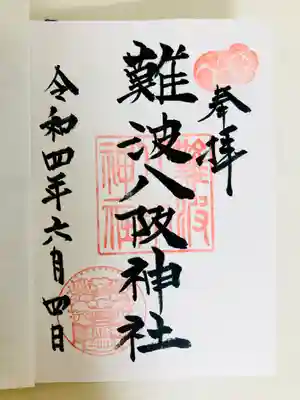 奉拝
難波八阪神社
令和四年六月四日